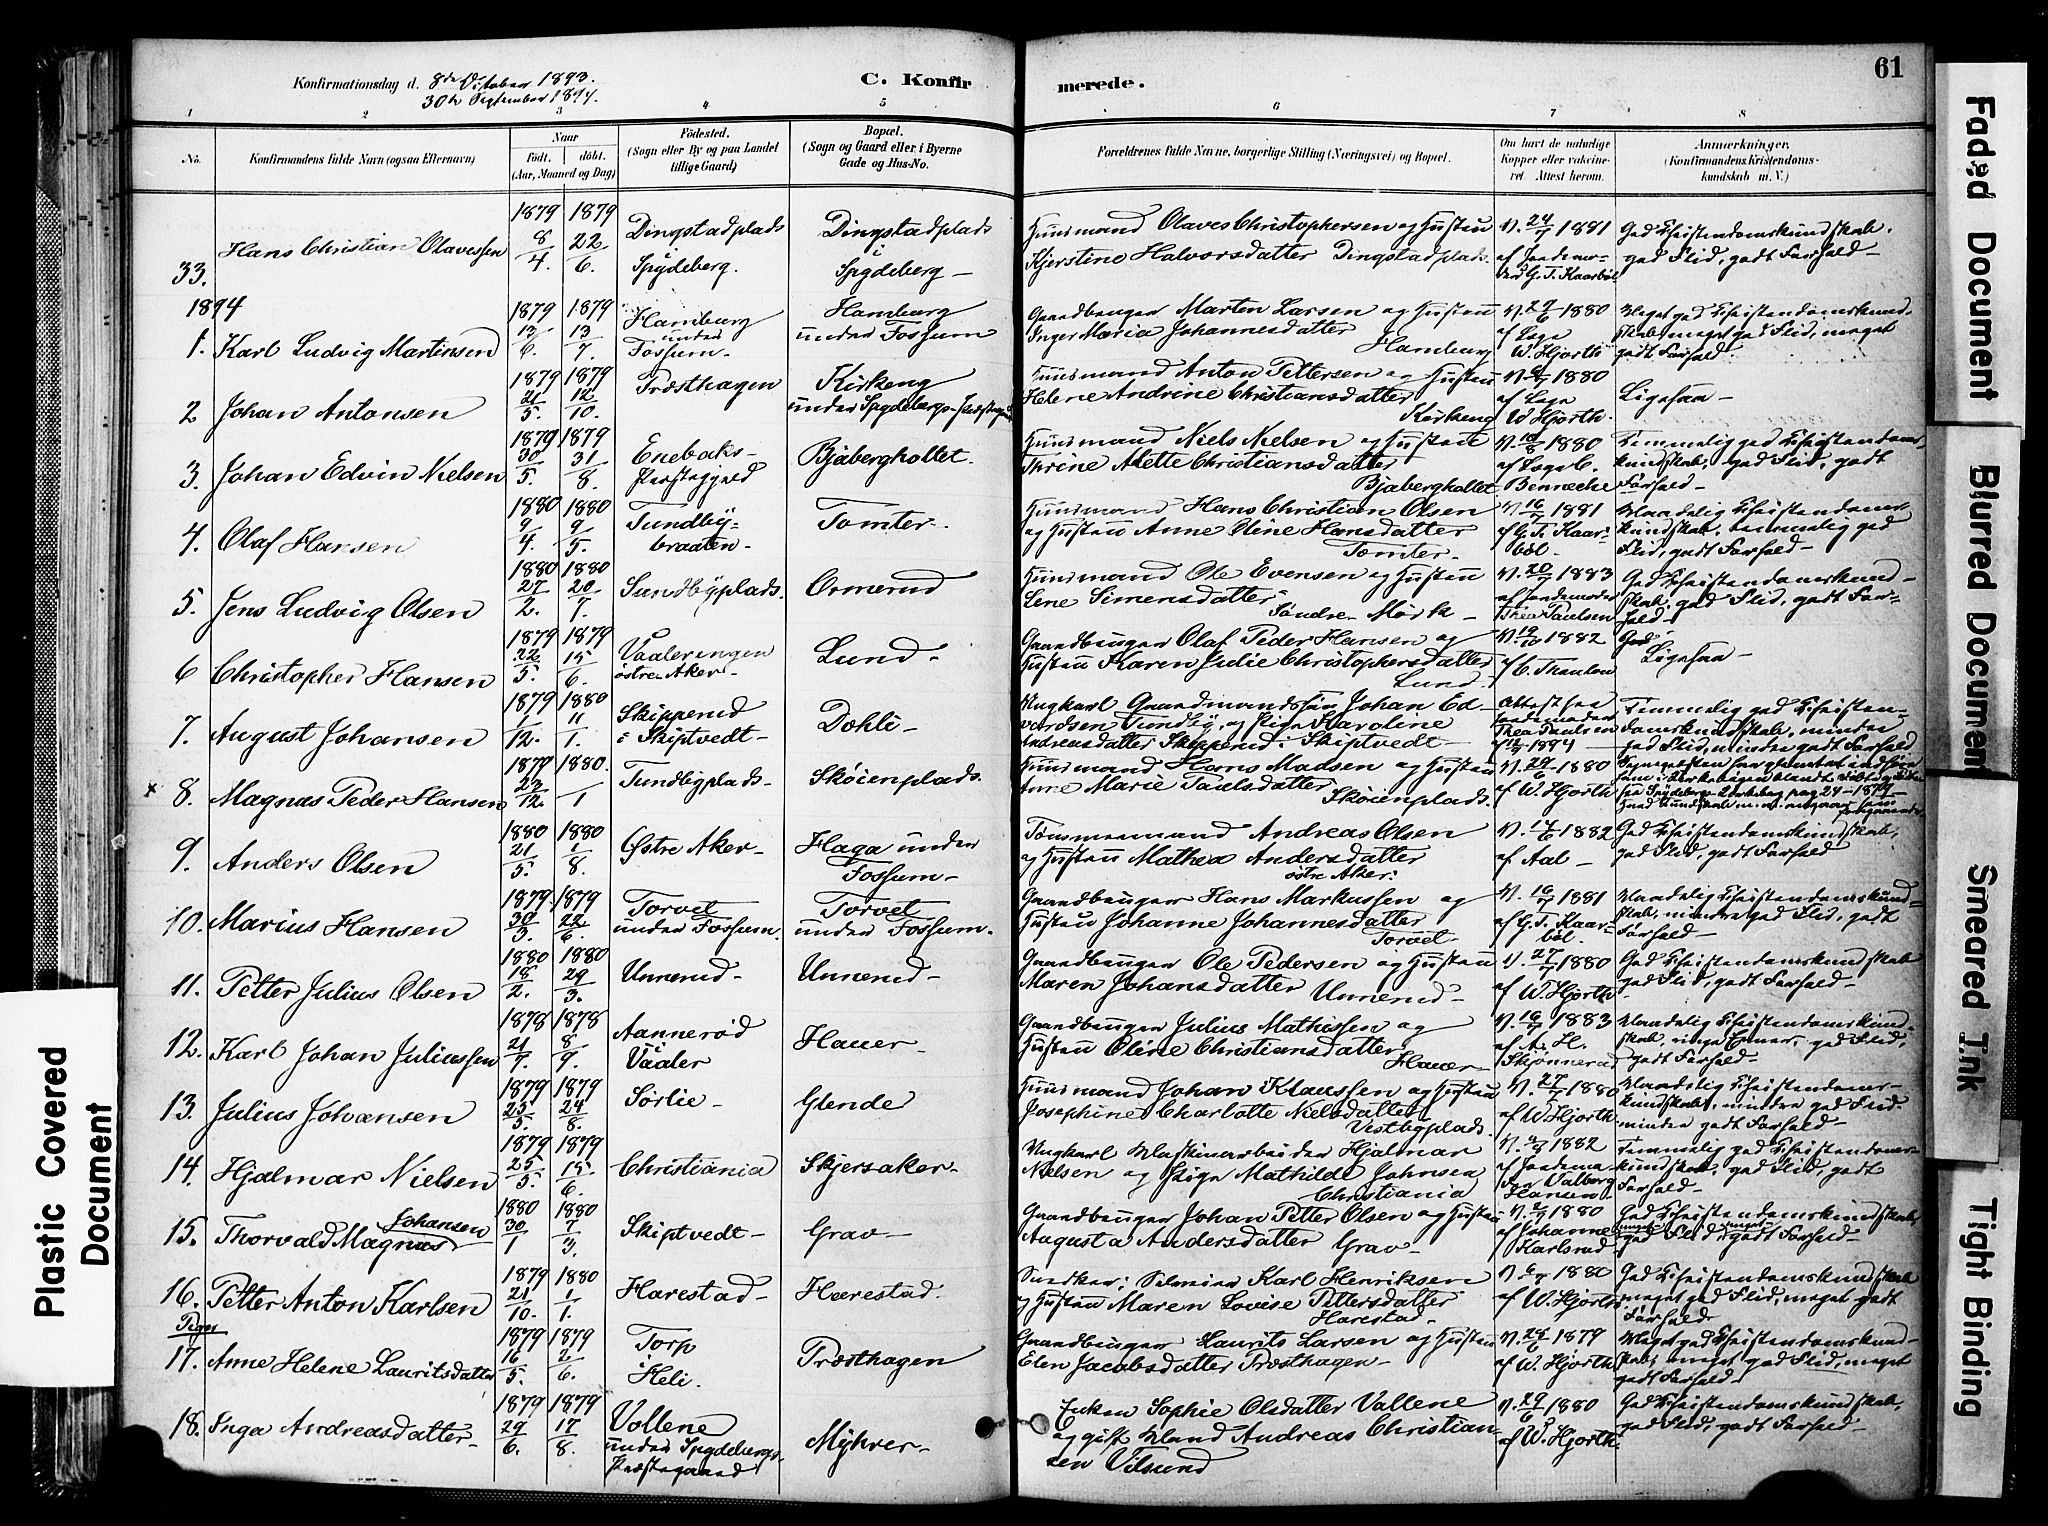 61
Konfirmationsdag d. 8de Oktober 1893.
30te September 1894.
C. Konfirmerede.
1 2 3 4 5 6 7 8
No.
Konfirmandens fulde Navn (ogsaa Efternavn)
Naar
født. døbt.
(Aar, Maaned og Dag)
Fødested.
(Sogn eller By og paa Landet
tillige Gaard)
Bopæl.
(Sogn og Gaard eller i Byerne
Gade og Hus-No.
Forældrenes fulde Navne, borgerlige Stilling (Næringsvei) og Bopæl.
Om havt de naturlige
Kopper eller vaccine-
ret. Attest herom.
Anmærkninger.
(Konfirmandens Kristendoms-
kundskab m. V.)
33. Hans Christian Olavessen
1879 8/4. 1879 22/6.
Dingstadplads
Spydeberg.
Dingstadplads
i
Spydeberg –
Huusmand Olaves Christophersen og Hustru
Kjerstine Halvorsdatter Dingstadplads.
V. 24/7 1881
af Jordemo-
der G. T. Kaarbøl
God Christendomskundskab,
god Flid, godt Forhold –
1894
1. Karl Ludvig Martinsen
1879 12/6. 1879 13/7.
Hamburg
under
Fossum –
Hamburg
under Fossum
Gaardbruger Marten Larsen og Hustru
Inger Maria Johannesdatter
Hamburg
V. 27/6 1880
af Læge
W. Hjorth
Meget god Christendomskund-
skab, meget god Flid, meget
godt Forhold.
2 Johan Antonsen
1879 21/5. 1879 12/10.
Præsthagen
Kirkeng
under Spydebergs Præstegd
Huusmand Anton Pettersen og Hustru
Helene Andrine Christiansdatter
Kirkeng
1880
af Læge
W Hjorth.
Ligesaa –
3. Johan Edvin Nielsen
1879 30/5. 1879 31/8.
Enebaks-
Præstegjeld
Bjåbergkollet.
Huusmand Niels Nielsen og Hustru
Thrine Alette Christiansdatter
Bjåbergkollet
V. 10/8 1880
af Læge C.
Benneche
Temmelig god Christendoms-
kundskab, god Flid, godt
Forhold –
4. Olaf Hansen
1880 9/4. 1880 9/5.
Tundby-
braaten –
Tomter.
Huusmand Hans Christian Olsen
og Hustru Anne Oline Hansdatter
Tomter –
V. 16/7 1881
af G. T. Kaar-
bøl –
Maadelig Christendoms-
kundskab, temmelig god
Flid, godt Forhold –
5. Jens Ludvig Olsen
1880 27/2. 1880 20/7.
Sundbyplads.
Ormerud
Huusmand Ole Evensen og Hustru
Lene Simensdatter
Søndre Mørk –
V. 20/7 1883
af Jordemoder
Thea Paulsen
God Christendomskund-
skab, god Flid, godt For-
hold –
6 Christopher Hansen
1879 22/5. 1879 15/6.
Vaaleringen
østre Aker –
Lund –
Gaardbruger Olaf Peder Hansen og
Hustru Karen Julie Christophersdatter
Lund –
V. 12/10 1882
af C. Thaulow
God
Ligesaa –
7. August Johansen
1879 1/12. 1880 11/1.
Skipperud
i Skiptvedt –
Dohli –
Ungkarl Gaardmandssøn Johan Ed-
vardsen Tundby og Pige Karoline
Andreasdatter Skipperud i Skiptvedt –
Attest fra
Jordemoder
Thea Paulsen
1894
Temmelig god Christen-
domskundskab, mindre
god Flid, mindre godt Forhold
x 8. Magnus Peder Hansen
23/12. 1880. /1
Tundbyplads –
Skøienplads.
Huusmand Hans Madsen og Hustru
Anne Marie Paulsdatter
Skøienplads.
V. 29/6 1880
af W. Hjorth
9. Anders Olsen
1880 21/5. 1880 1/8.
Østre Aker –
Haga under
Fossum –
Tømmermand Andreas Olsen
og Hustru Mathea Andersdatter
østre Aker:
V. 14/6 1882
af Aal –
God Christendomskundskab,
god Flid, godt Forhold
10. Marius Hansen
1879. 30/3. 1879 22/6.
Torvet
under Fossum.
Torvet
under Fossum.
Gaardbruger Hans Markussen og
Hustru Johanne Johannesdatter
Torvet –
V. 16/7 1881
af G. T. Kaar-
bøl.
Maadelig Christendomskund-
skab, mindre god Flid, godt
Forhold –
11. Petter Julius Olsen
1880 18/2. 1880 29/3.
Unnerud –
Unnerud –
Gaardbruger Ole Pedersen og Hustru
Maren Johansdatter
Unnerud –
V. 27/7 1880
af W. Hjorth.
God Christendomskundskab
god Flid, godt Forhold –
12. Karl Johan Juliussen
1878 21/7. 1878 8/9.
Aannerød
Vaaler
Hauer –
Gaardbruger Julius Mathissen og
Hustru Oline Christiansdatter
Hauer –
V. 16/7 1883
af A. H.
Skjønnerud
Maadelig Christendomskund-
skab, ringe Evner, god Flid,
godt Forhold –
13. Julius Johansen
1879 23/5. 1879 24/8.
Sørlie –
Glende
Huusmand Johan Klaussen og Hustru
Josephine Charlotte Nielsdatter
Vestbyplads.
V. 27/7 1880
af W. Hjorth
Maadelig Christendoms-
kundskab, mindre god Flid.
mindre godt Forhold –
14. Hjalmar Nielsen
1879 25/5. 1879 15/6.
Christiania
Skjersaker –
Ungkarl Maskinarbeider Hjalmar
Nielsen og Pige Mathilde Johnsen
Christiania
1882
af Jordemo-
der Valborg
Hansen –
Temmelig god Christendoms-
kundskab, god Flid, godt
Forhold –
15. Thorvald Magnus Johansen
1880 30/1 1880 7/3.
Skiptvedt –
Grav –
Gaardbruger Johan Petter Olsen og Hustru
Augusta Andersdatter Grav –
1880
af Johanne
Karlsrud
God Christendomskundskab,
meget god Flid, meget godt Forhold –
16. Petter Anton Karlsen
1879 21/10. 1880 1/1.
Harestad –
Harestad.
Snedker i Selveier Karl Henriksen
og Hustru Maren Lovise Pettersdatter
Harestad –
1880
af W. Hjorth
God Christendomskundskab
meget god Flid, meget godt
Forhold
Piger
17. Anne Helene Lauritsdatter
1879 16/5. 1879 2/6.
Torp
Heli.
Præsthagen
Gaardbruger Laurits Larsen og Hustru
Elen Jacobsdatter Præsthagen –
V. 28/6 1879
af W. Hjorth
Meget god Christendomskund-
skab, meget god Flid, meget
godt Forhold –
18. Inga Andreasdatter –
1879 29/6. 1879 17/8.
Vollene
under Spydebergs
Præstegaard
Myhrer –
Enken Sophie Olsdatter Vollene
og gift Mand Andreas Christian-
sen Vilsund
V. 29/6 1880
af W. Hjorth
God Christendomskundskab,
god Flid, godt Forhold –
Plastic Covered
Document
Faded Document
Blurred Document
Smeared Ink
Tight Binding